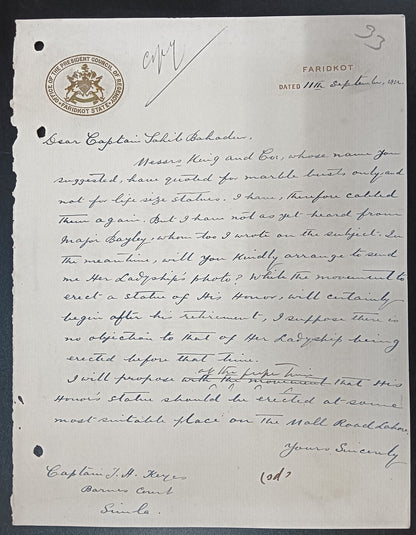 33
copy
OFFICE OF THE PRESIDENT COUNCIL OF REGENCY
FARIDKOT STATE
FARIDKOT
DATED 11th September, 191
Dear Captain Sahib Bahadur,
Messrs King and Co:, whose name you
suggested, have quoted for marble busts only and
not for life size statues. I have, therefore cabled
them again. But I have not as yet heard from
Major Bayley, whom too I wrote on the subject. In
the meantime, will you Kindly arrange to send
me Her Ladyship's photo? While the movement to
erect a statue of His Honor, will certainly
begin after his retirement, I suppose there is
no objection to that of Her Ladyship being
erected before that time.
at the proper time
I will propose with the movement that His
Honor's statue should be erected at some
most suitable place on the Mall Road Lahore.
Yours Sincerely
Captain T. H. Keyes
Barnes Court
Simla.